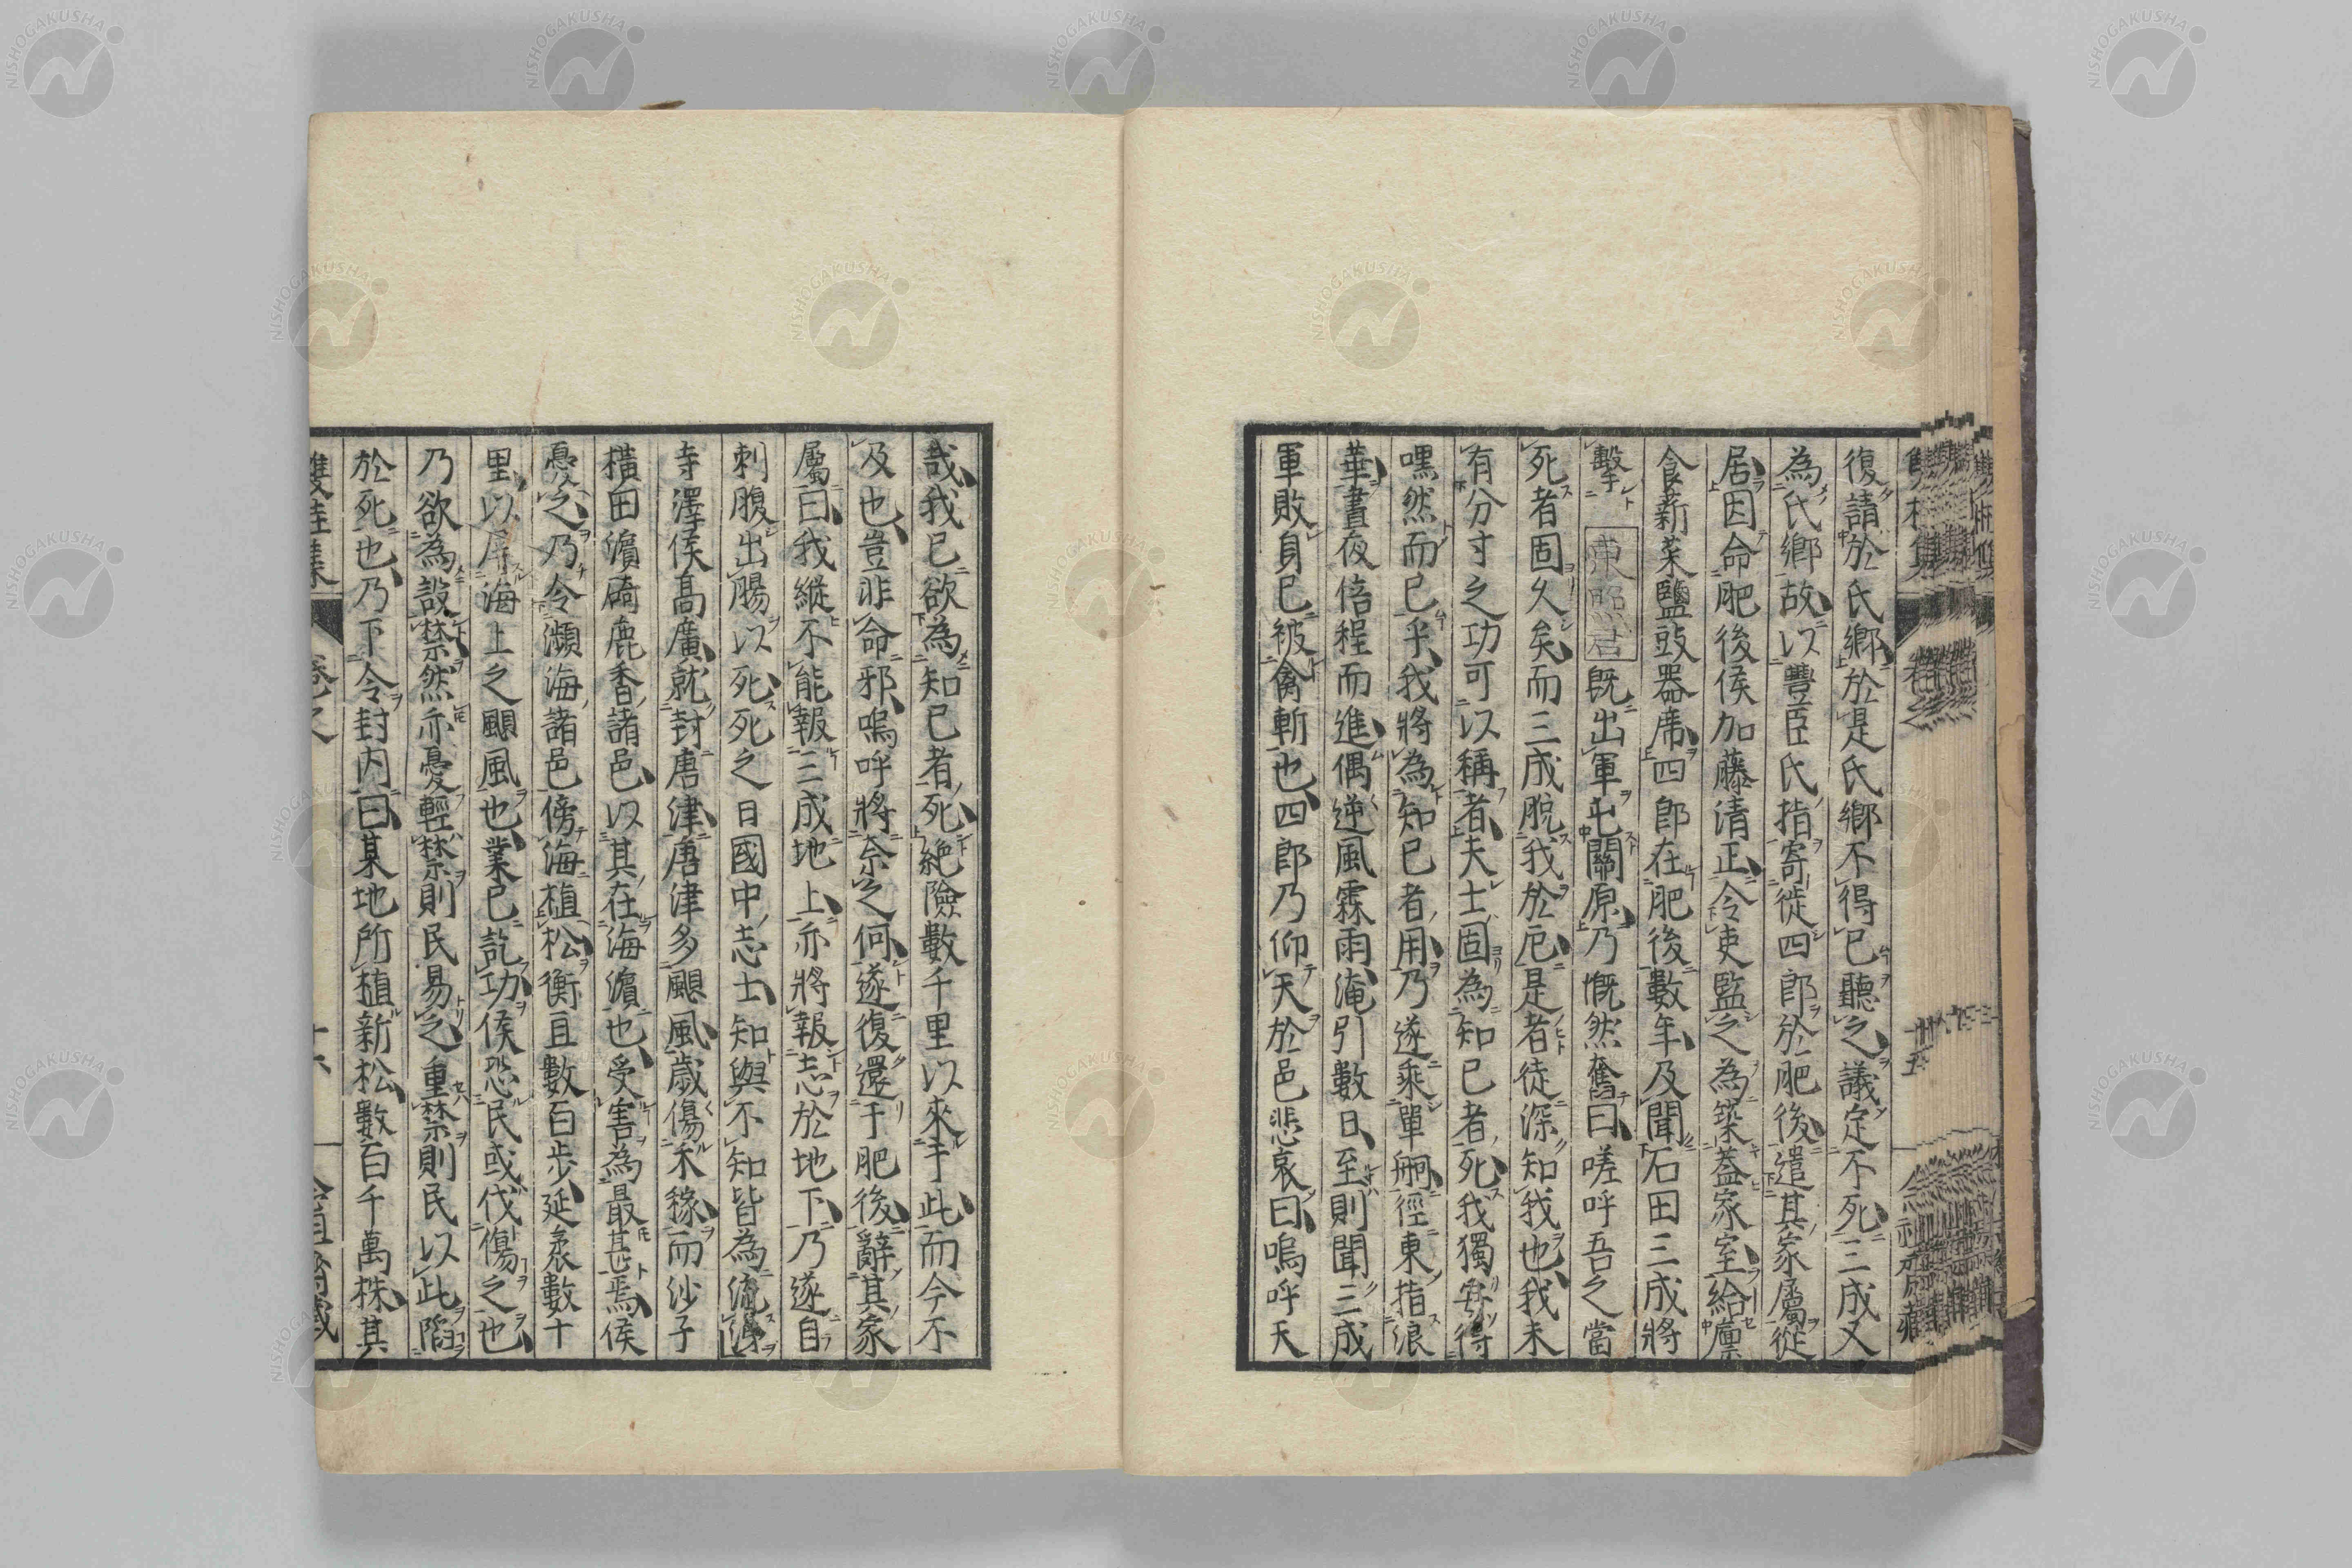 復請於氏鄉於是氏鄉不得已聽之議定不死三成又
為氏鄉故以豐臣氏指寄徙四郎於肥後遣其家屬從
居因命肥後侯加藤清正令吏監之為築蓋家室給廩
食薪菜鹽豉器席四郎在肥後數年及聞石田三成將
擊東照君既出軍屯關原乃慨然奮曰嗟呼吾之當
死者固久矣而三成脫我於厄是者徒深知我也我未
有分寸之功可以稱者夫士固為知已者死我獨安得
嘿然而已乎我將為知已者用乃遂乘單舸徑東指浪
華晝夜倍程而進偶逆風霖雨淹引數日至則聞三成
軍敗身已被禽斬也四郎乃仰天於邑悲哀曰嗚呼天
哉我已欲為知已者死絕險數千里以來于此而今不
及也豈非命邪嗚呼將奈之何遂復還于肥後辭其家
屬曰我縱不能報三成地上亦將報志於地下乃遂自
刺腹出腸以死死之日國中志士知與不知皆為流涕
寺澤侯高廣就封唐津唐津多颶風歲傷禾稼而沙子
橫田濵碕鹿香諸邑以其在海濵也受害為最甚焉侯
憂之乃令瀕海諸邑傍海植松衡且數百步延袤數十
里以屏海上之颶風也業已訖功侯恐民或伐傷之也
乃欲為設禁然亦憂輕禁則民易之重禁則民以此陷
於死也乃下令封内曰某地所植新松數百千萬株其
NISHOGAKUSHA